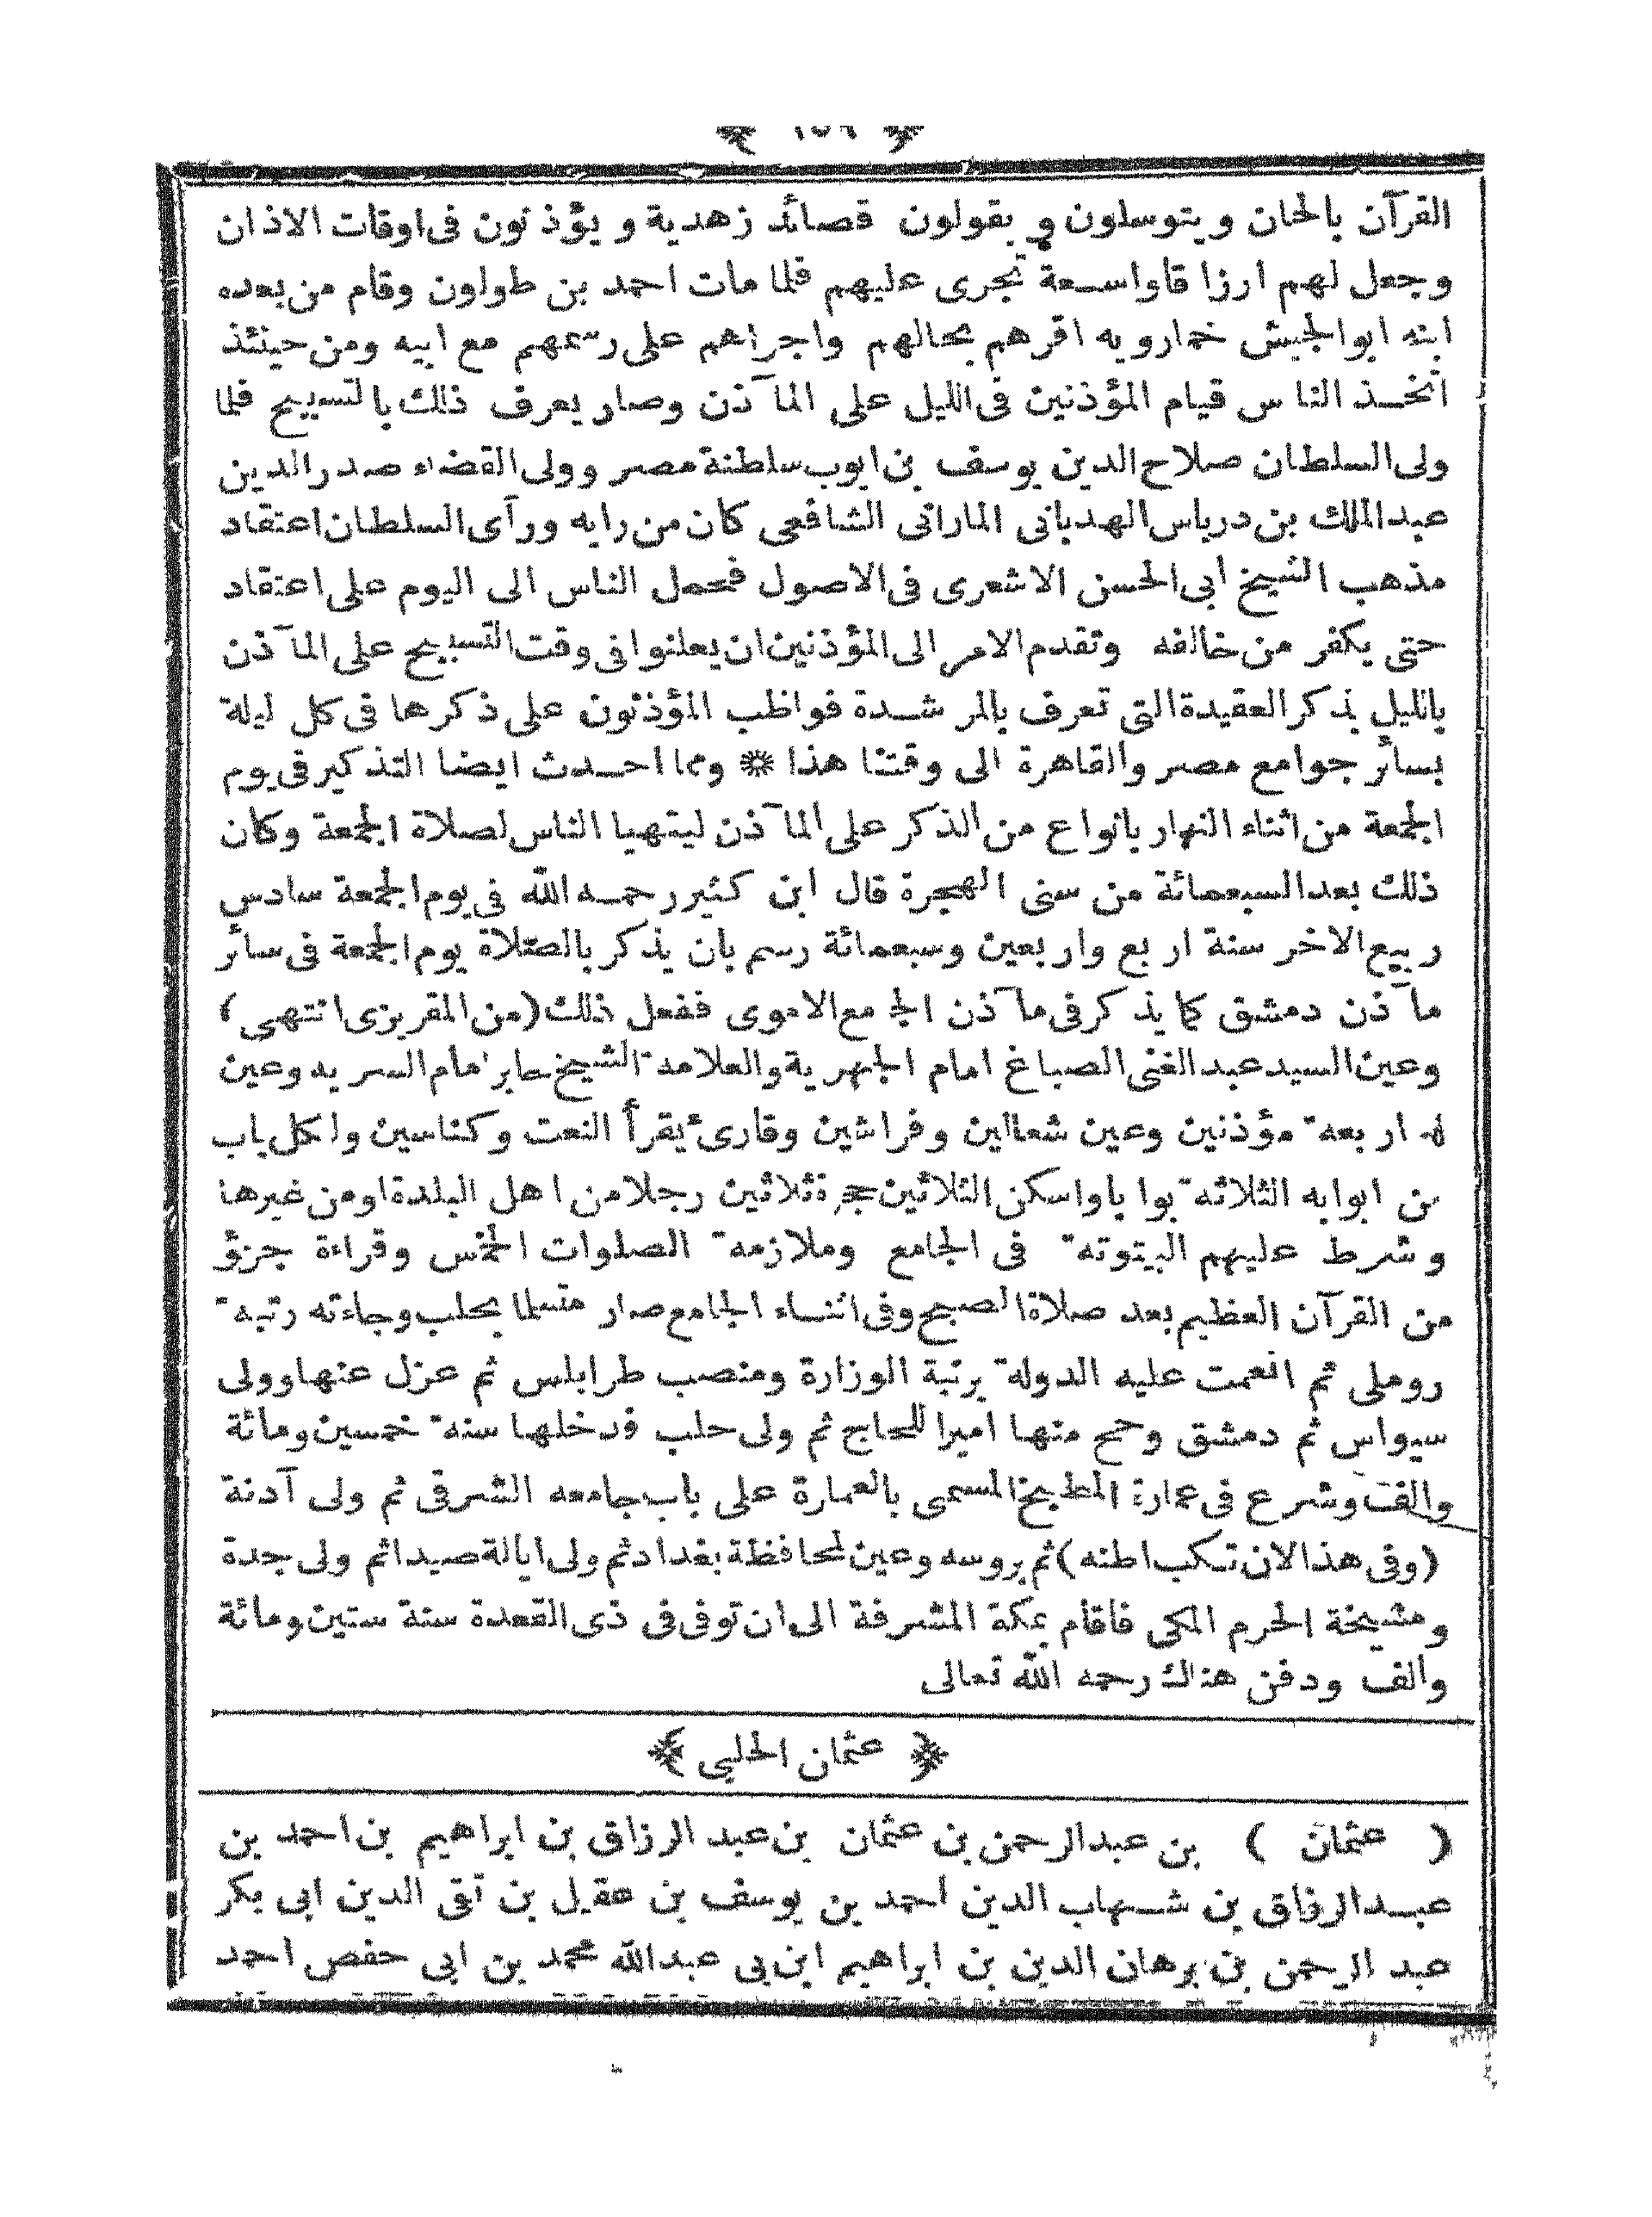 القرآن بالحان ويتوسلون ويقولون قصائد زهدية ويؤذنون فى اوقات الاذان
وجعل لهم ارزاقا واسعة تجرى عليهم فلما مات احمد بن طولون وقام من بعده
ابنه ابو الجيش خمارويه اقرهم بحالهم واجراهم على رسمهم مع ابيه ومن حينئذ
اتخذ الناس قيام المؤذنين فى الليل على المآذن وصار يعرف ذلك بالتسبيح فلما
ولى السلطان صلاح الدين يوسف بن ايوب سلطنة مصر وولى القضاء صدر الدين
عبد الملك بن درباس الهدبانى المارانى الشافعى كان من رايه ورآى السلطان اعتقاد
مذهب الشيخ ابى الحسن الاشعرى فى الاصول فحمل الناس الى اليوم على اعتقاد
حتى يكفر من خالفه وتقدم الامر الى المؤذنين ان يعلنوا فى وقت التسبيح على المآذن
بالليل بذكر العقيدة التى تعرف بالمرشدة فواظب المؤذنون على ذكرها فى كل ليلة
بسائر جوامع مصر والقاهرة الى وقتنا هذا * ومما احدث ايضا التذكير فى يوم
الجمعة من اثناء النهار بانواع من الذكر على المآذن ليتهيا الناس لصلاة الجمعة وكان
ذلك بعد السبعمائة من سنى الهجرة قال ابن كثير رحمه الله فى يوم الجمعة سادس
ربيع الاخر سنة اربع واربعين وسبعمائة رسم بان يذكر بالصلاة يوم الجمعة فى سائر
مآذن دمشق كما يذكر فى مآذن الجامع الاموى ففعل ذلك (من المقريزى انتهى)
وعين السيد عبد الغنى الصباغ امام الجهرية والعلامة الشيخ صابر امام السريه وعين
له اربعة مؤذنين وعين شعالين وفراشين وقارئ يقرأ النعت وكناسين ولكل باب
من ابوابه الثلاثة بوابا واسكن الثلاثين حجرة ثلاثين رجلا من اهل البلدة او من غيرها
وشرط عليهم البيتوتة فى الجامع وملازمة الصلوات الخمس وقراءة جزؤ
من القرآن العظيم بعد صلاة الصبح وفى اثناء الجامع صار متسلما بحلب وجاءته رتبة
روملى ثم انعمت عليه الدولة برتبة الوزارة ومنصب طرابلس ثم عزل عنها وولى
سيواس ثم دمشق وحج متها اميرا للحاج ثم ولى حلب فدخلها سنة خمسين ومائة
والف وشرع فى عمارة المطبخ المسمى بالعمارة على باب جامعه الشرقى ثم ولى آدنة
(وفى هذا الان تكب اطنه) ثم بروسه وعين لمحافظة بغداد ثم ولى ايالة صيدا ثم ولى جدة
ومشيخة الحرم المكى فاقام بمكة المشرفة الى ان توفى فى ذى القعدة سنة ستين ومائة
والف ودفن هناك رحمه الله تعالى
﴿ عثمان الحلبى ﴾
( عثمان ) بن عبد الرحمن بن عثمان بن عبد الرزاق بن ابراهيم بن احمد بن
عبد الرزاق بن شهاب الدين احمد بن يوسف بن عقيل بن تقى الدين ابى بكر
عبد الرحمن بن برهان الدين بن ابراهيم ابن بى عبد الله محمد بن ابى حفص احمد